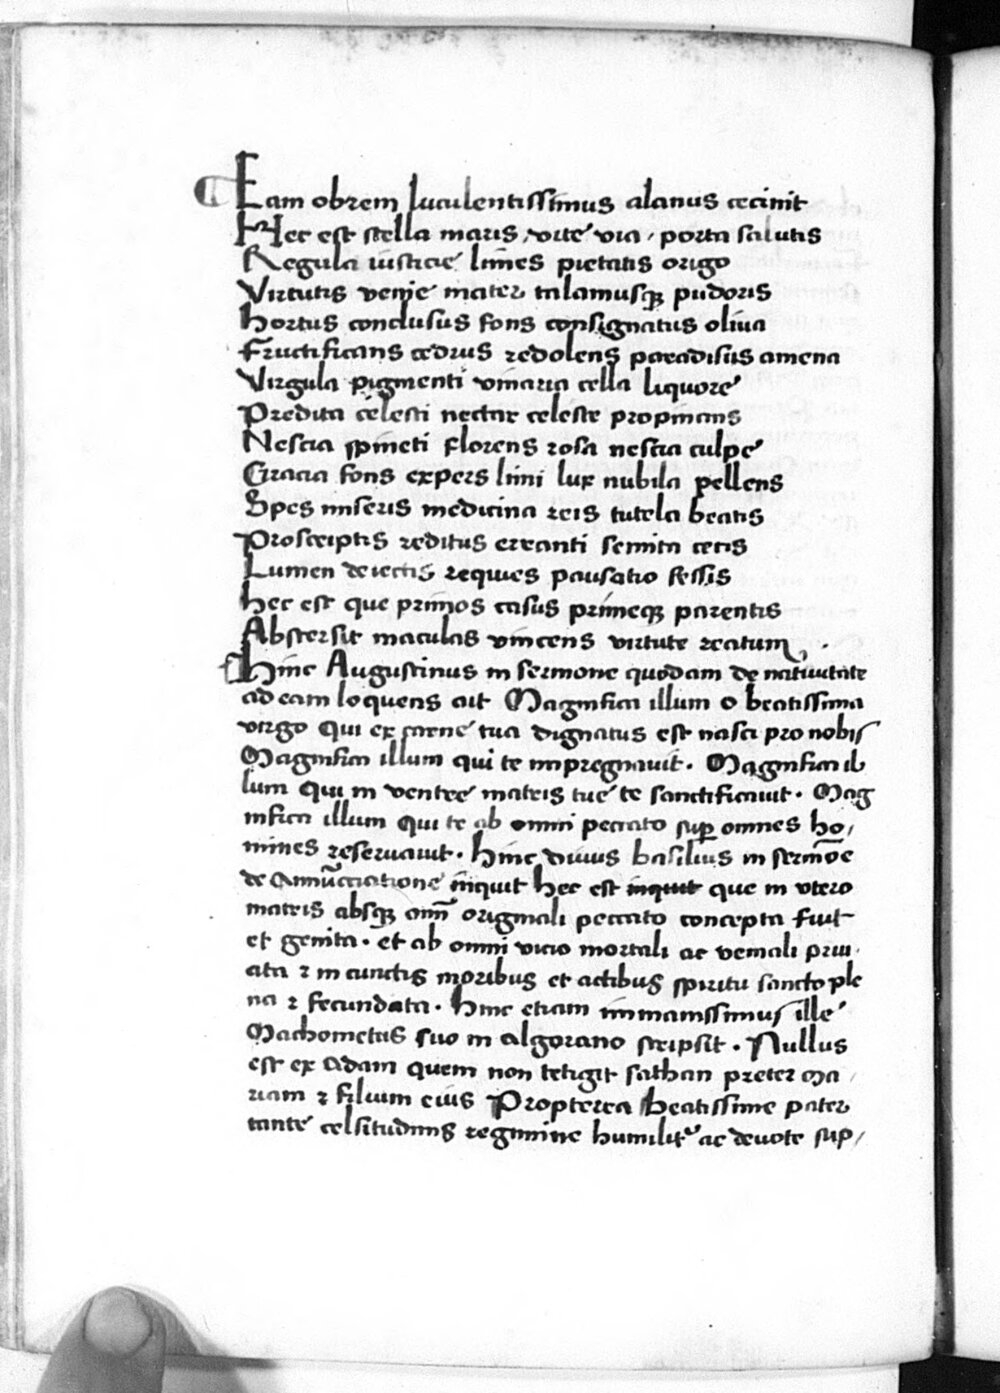 Eam obrem luculentissimus alanus cecinit
Hec est stella maris, vite via, porta salutis
Regula iusticie limes pietatis origo
Virtutis venie mater talamusqꝫ pudoris
Hortus conclusus fons consignatus oliva
Fructificans cedrus redolens paradisus amena
Virgula pigmenti vinaria cella liquore
Predita celesti nectar celeste propinans
Nescia spineti florens rosa nescia culpe
Gracia fons expers limi lux nubila pellens
Spes miseris medicina reis tutela beatis
Proscriptis reditus erranti semita cecis
Lumen deiectis requies pausatio fessis
Hec est que primos casus primeqꝫ parentis
Abstersit maculas vincens virtute reatum
Hinc Augustinus in sermone quodam de nativitate
ad eam loquens ait Magnifica illum o beatissima
virgo qui ex carne tua dignatus est nasci pro nobis
Magnifica illum qui te impregnavit. Magnifica il
lum qui in ventre matris tue te sanctificavit. Mag
nifica illum qui te ab omni peccato sup̄ omnes ho,
mines reservavit. Hinc divus basilius in sermōe
de Annūciatione inquit Hec est inquit que in utero
matris absqꝫ om̄i originali peccato concepta fuit
et genita. et ab omni vicio mortali ac veniali priv
ata ⁊ in cunctis moribus et actibus spiritu sancto ple
na ⁊ fecundata. Hinc etiam immanissimus ille
Machometus suo in algorano scripsit. Nullus
est ex Adam quem non tetigit sathan preter Ma,
riam ⁊ filium eius Propterea beatissime pater
tante celsitudinis regimine humilit᷑ ac devote sup,